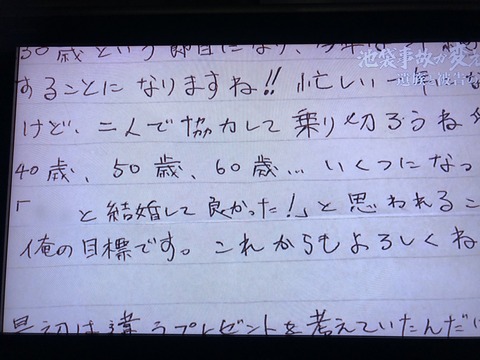 30歳という節目になり、
することになりますね!! 忙しい一年
けど、二人で協力して乗り切ろうね
40歳、50歳、60歳… いくつになっ
「 と結婚して良かった!」と思われるこ
俺の目標です。これからもよろしくね
最初は違うプレゼントを考えていたんだけ
池袋事故が変え
遺族と被告